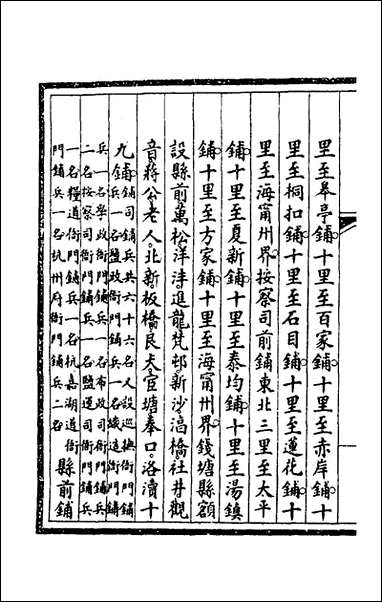 里至皋亭鋪十里至百家鋪十里至赤岸鋪十
里至桐扣鋪十里至石目鋪十里至蓮花鋪十
里至海甯州界按察司前鋪東北三里至太平
鋪十里至夏新鋪十里至泰均鋪十里至湯鎮
鋪十里至方家鋪十里至海甯州界錢塘縣額
設縣前萬松洋泮進龍梵邨新沙湢橋社井觀
音蔣公老人北新板橋艮大官塘奉口洛瀆十
九鋪司鋪兵共六十六名設巡撫衙門鋪
兵一名鹽政衙門鋪兵一名織造衙門鋪
兵一名學政衙門鋪兵一名布政司衙門鋪兵
二名按察司衙門鋪兵一名鹽運司衙門鋪兵
一名糧道衙門鋪兵一名杭嘉湖道衙
門鋪兵一名杭州府衙門鋪兵二名
縣前鋪